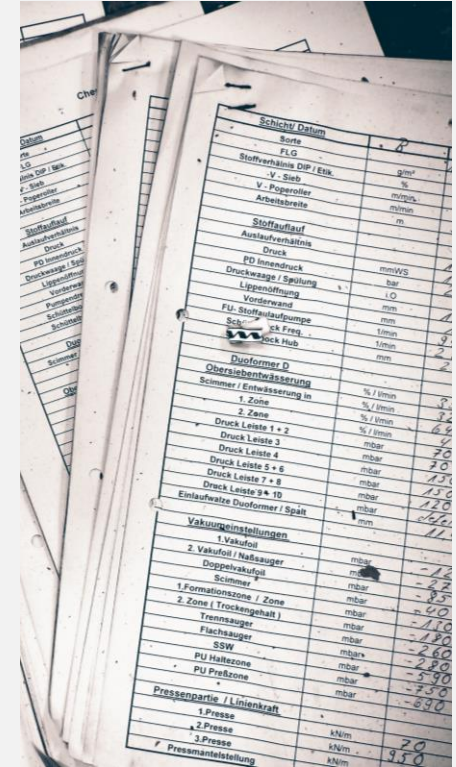 Che
Datum
FLG
- Sieb
- Poperoller
Arbeitsbreite
Stoffauflauf
Auslaufverhältnis
Druck
PD Innendruck
Druckwaage / Spü
Lippenöffnu
Vorderwa
Pumpendre
Schüttelb
Schüttelh
Scimmer
Obe
Schicht/ Datum
Sorte
FLG g/m²
Stoffverhälnis DIP / Etik. %
-V - Sieb m/min
V - Poperoller m/min
Arbeitsbreite m
Stoffauflauf
Auslaufverhältnis
Druck mmWS
PD Innendruck bar
Druckwaage / Spülung i.O
Lippenöffnung mm
Vorderwand mm
FU- Stoffauflaufpumpe 1/min
ck Freq. 1/min
ock Hub mm
Duoformer D
Obersiebentwässerung
Scimmer / Entwässerung in % / l/min
1. Zone % / l/min
2. Zone % / l/min
Druck Leiste 1 + 2 mbar
Druck Leiste 3 mbar 70
Druck Leiste 4 mbar 70
Druck Leiste 5 + 6 mbar 150
Druck Leiste 7 + 8 mbar 150
Druck Leiste 9 + 10 mbar 120
Einlaufwalze Duoformer / Spalt mm
Vakuumeinstellungen
1.Vakufoil mbar
2. Vakufoil / Naßsauger
Doppelvakufoil mbar
Scimmer mbar -40
1.Formationszone / Zone mbar -130
2. Zone ( Trockengehalt ) mbar -180
Trennsauger mbar -260
Flachsauger mbar -280
SSW mbar -590
PU Haltezone mbar -750
PU Preßzone mbar -690
Pressenpartie / Linienkraft
1.Presse kN/m 70
2.Presse kN/m 950
3.Presse kN/m
Pressmantelstellung